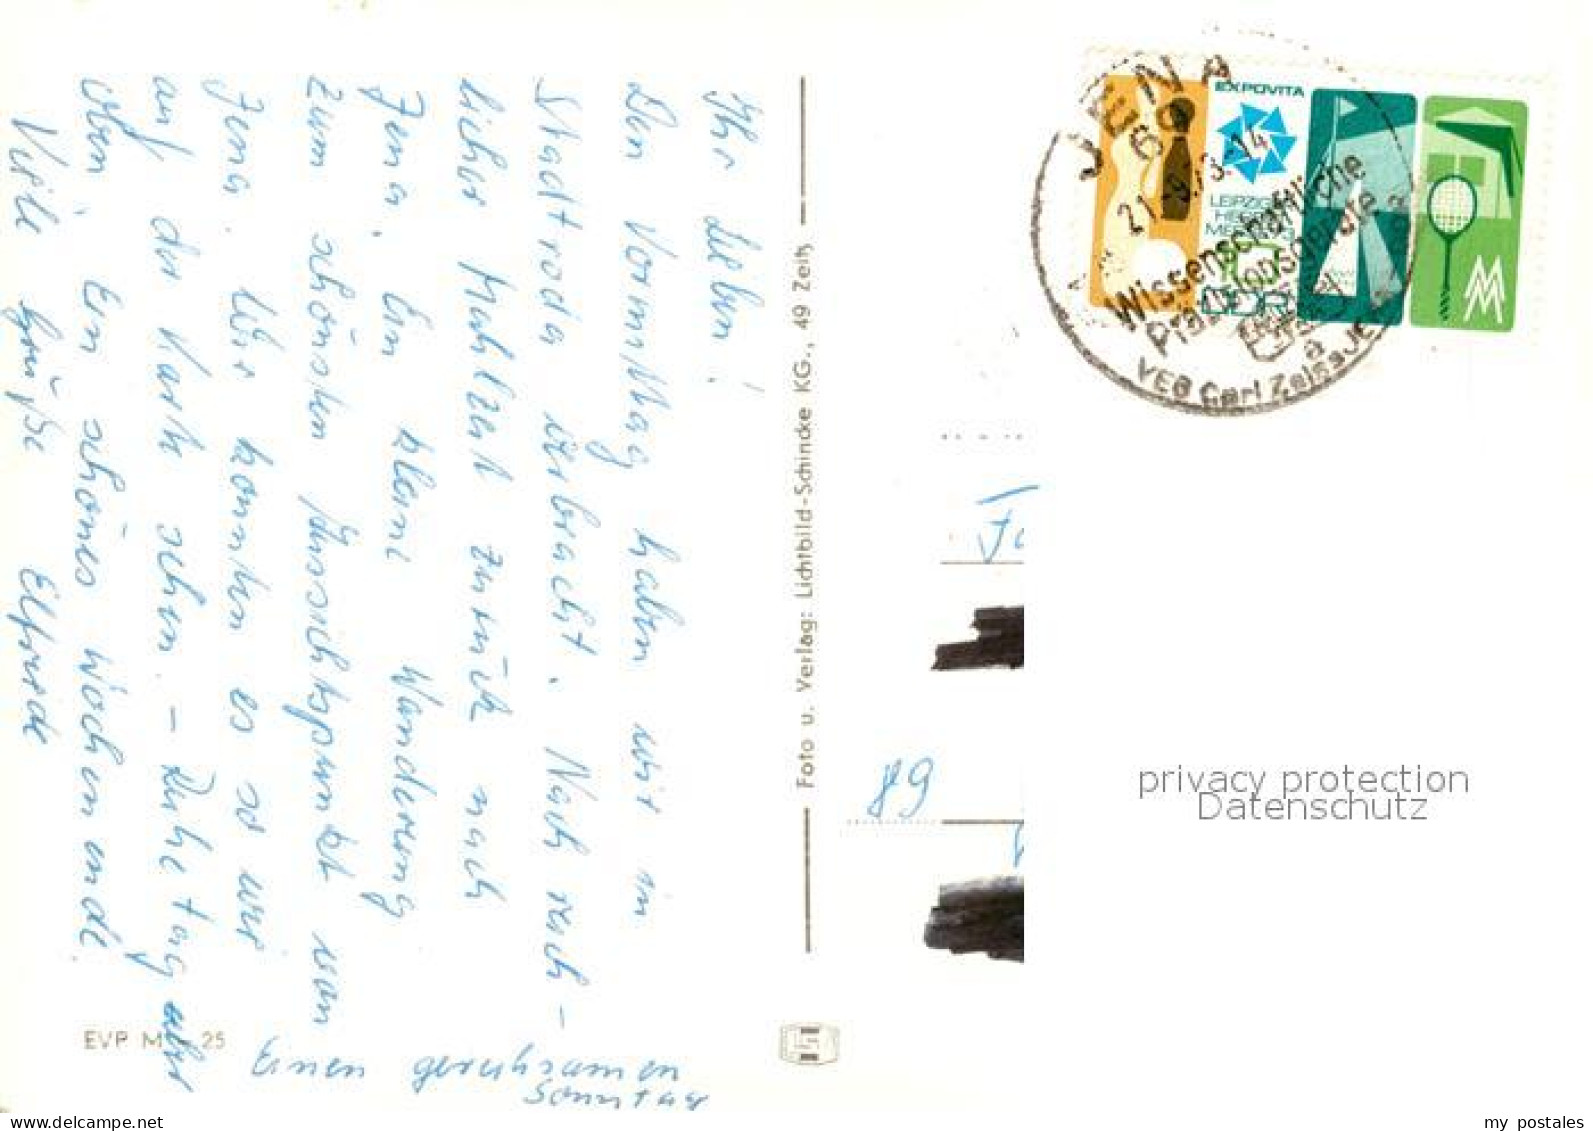 Ihr Lieben!
Den Vormittag haben wir in
Stadtroda verbracht. Nach reich-
licher Mahlzeit zurück nach
Jena. Ein kleine Wanderung
zum schönsten Aussichtspunkt von
Jena. Wir konnten es so wie
auf der Karte sehen. - Ruhetag aber
oben. Ein schönes Wochenende.
Viele Grüße Elfriede
Einen geruhsamen
Sonntag
EVP M -,25
Foto u. Verlag: Lichtbild-Schincke KG., 49 Zeitz
JENA
69
21.-9.73.-14
Wissenschaftliche
Präzisionsgeräte
a
VEB Carl Zeiss JENA
EXPOVITA
LEIPZIGER
HERBST
MESSE 1973
DDR
MM
89
privacy protection
Datenschutz
my postales
www.delcampe.net